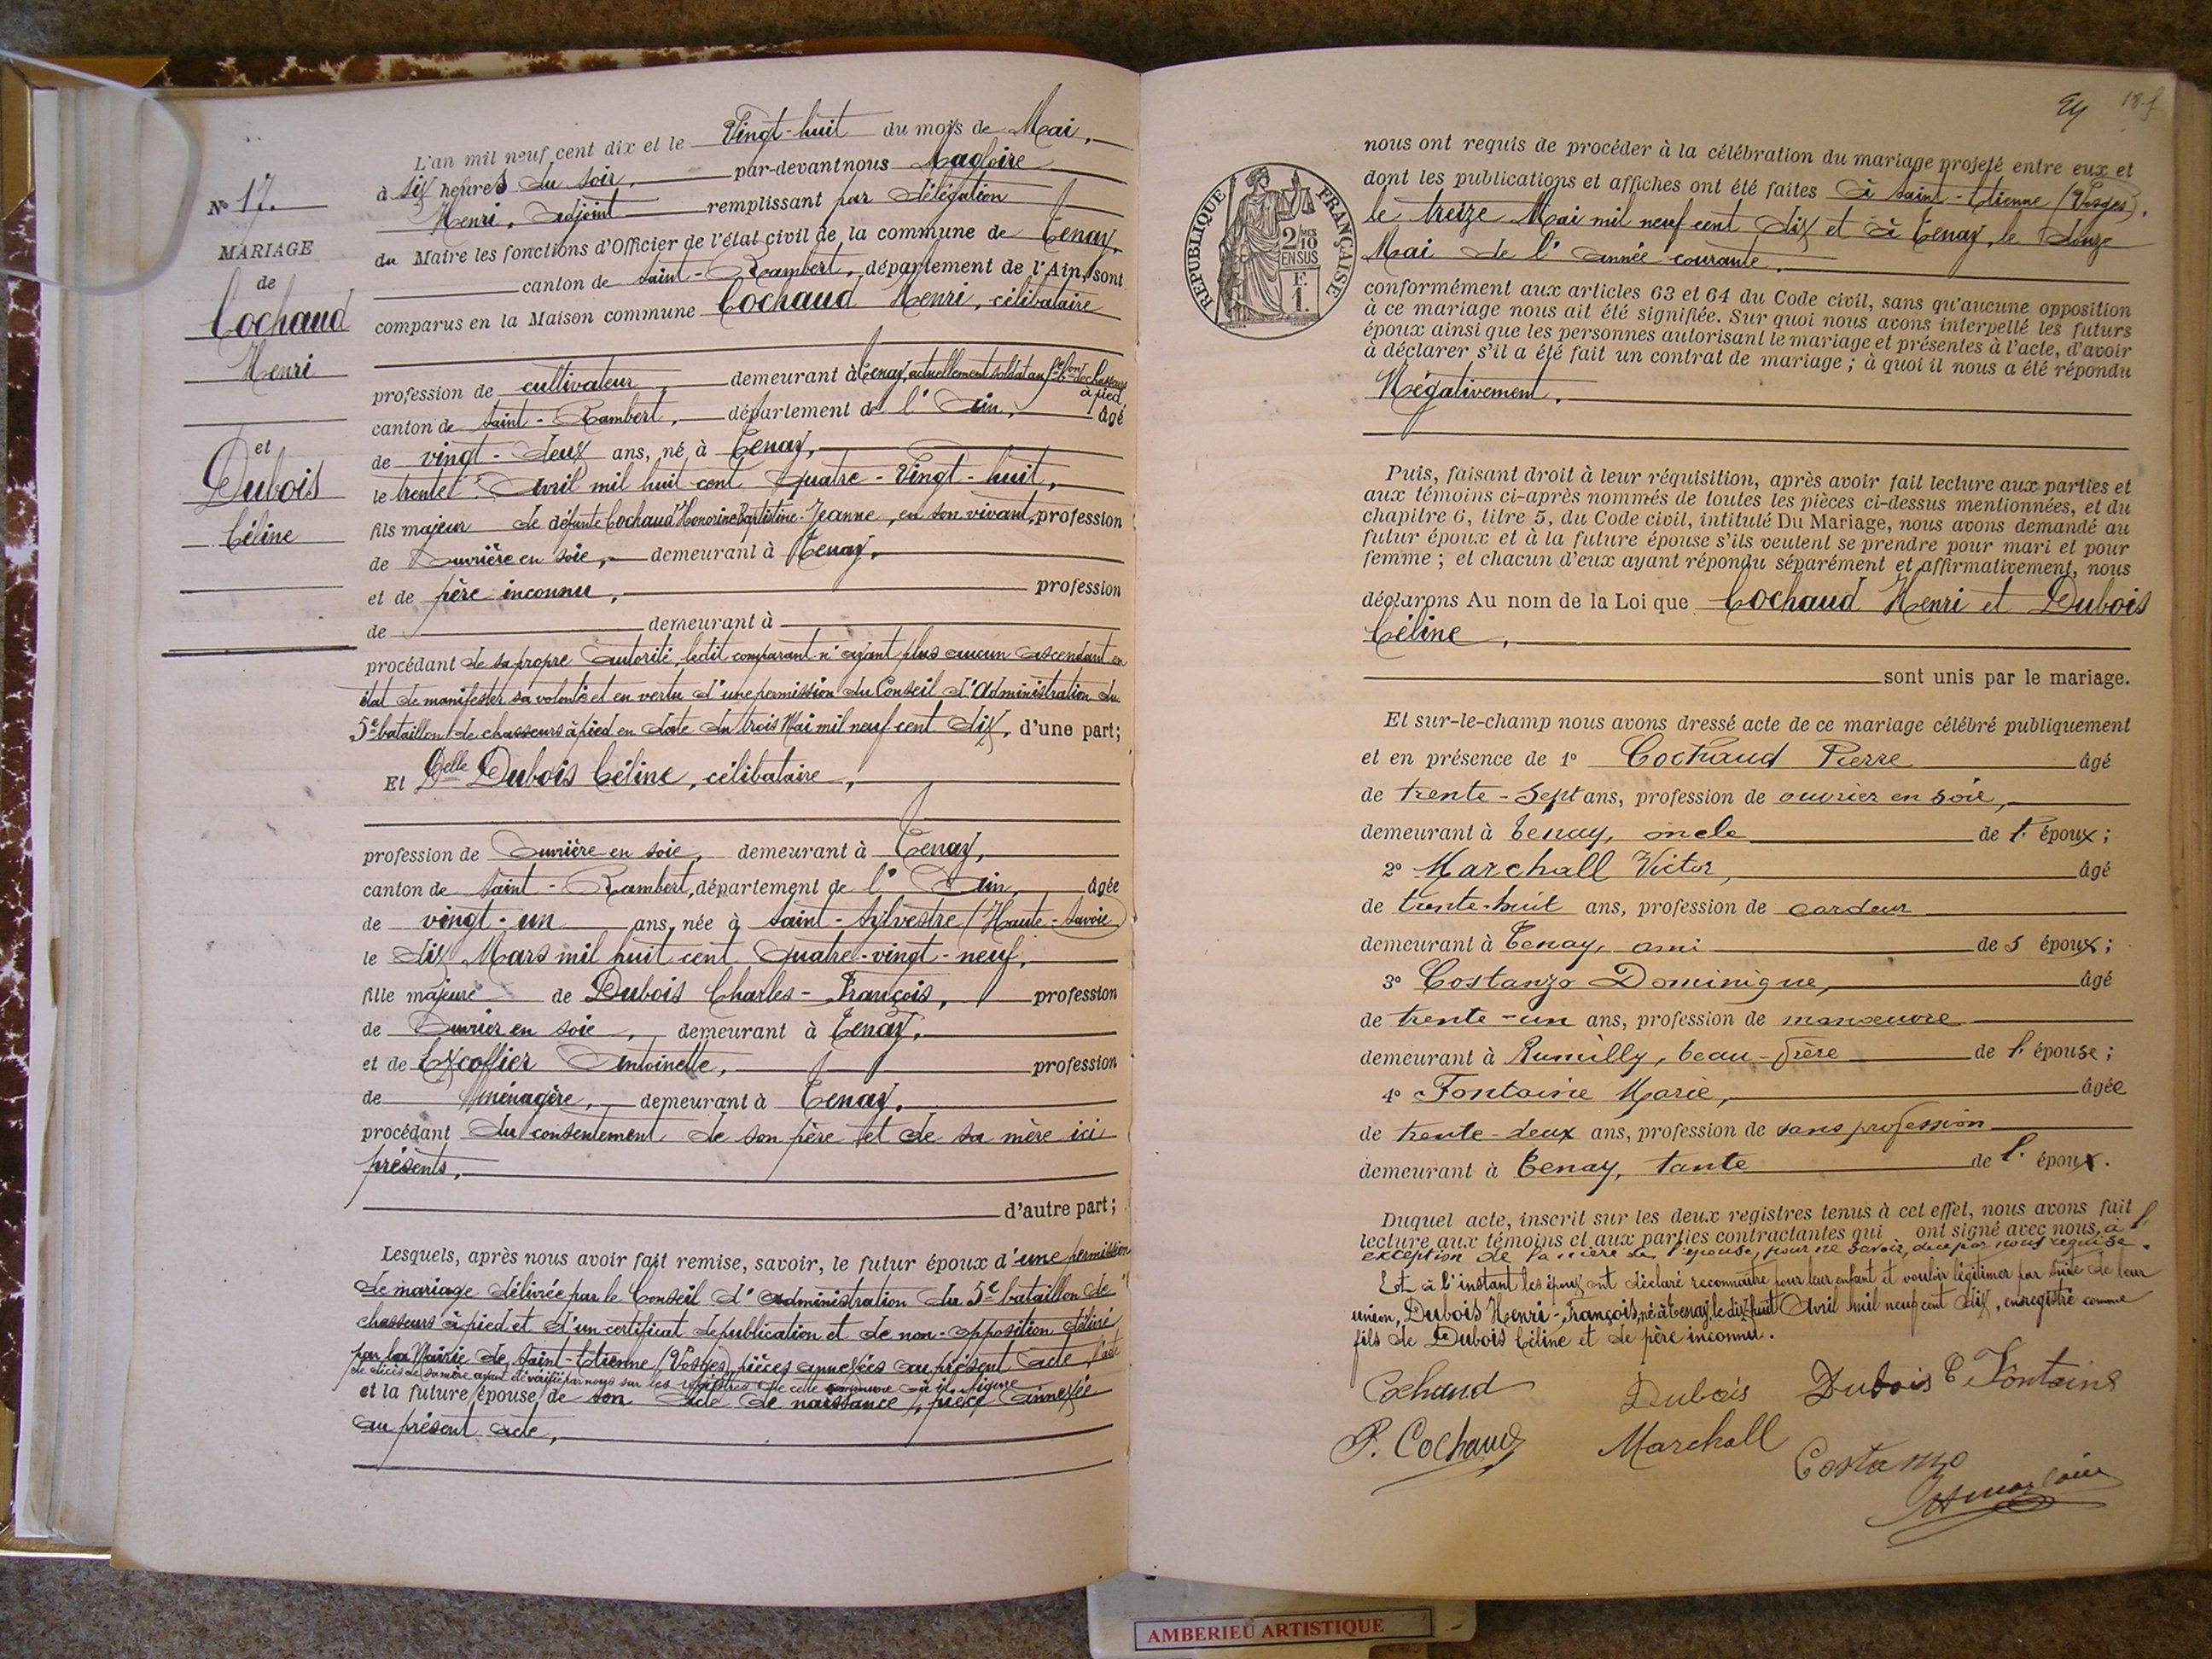 N° 17.
MARIAGE
de
Cochaud
Henri
et
Dubois
Céline
L'an mil neuf cent dix et le Vingt-huit du mois de Mai,
à six heures du soir, par-devant nous Magloire
Henri, Adjoint remplissant par délégation
du Maire les fonctions d'Officier de l'état civil de la commune de Tenay,
canton de Saint-Rambert, département de l'Ain, sont
comparus en la Maison commune Cochaud Henri, célibataire
profession de cultivateur, demeurant à Tenay, actuellement soldat au 5e Bon de Chasseurs
à pied,
canton de Saint-Rambert, département de l'Ain, âgé
de vingt-deux ans, né à Tenay,
le trente Avril mil huit cent quatre-Vingt-huit,
fils majeur de défunte Cochaud Honorine Baptistine-Jeanne, en son vivant, profession
de Ouvrière en soie, demeurant à Tenay,
et de père inconnu, profession
de demeurant à
procédant de sa propre autorité, ledit comparant n'ayant plus aucun ascendant en
état de manifester sa volonté et en vertu d'une permission du Conseil d'Administration du
5e bataillon de chasseurs à pied en date du trois Mai mil neuf cent dix, d'une part;
Et Delle Dubois Céline, célibataire,
profession de Ouvrière en soie, demeurant à Tenay,
canton de Saint-Rambert, département de l'Ain, âgée
de vingt-un ans, née à Saint-Sylvestre (Haute-Savoie)
le dix Mars mil huit cent quatre-vingt-neuf,
fille majeure de Dubois Charles-François, profession
de Ouvrier en soie, demeurant à Tenay,
et de Excoffier Antoinette, profession
de Ménagère, demeurant à Tenay,
procédant du consentement de son père et de sa mère ici
présents,
d'autre part;
Lesquels, après nous avoir fait remise, savoir, le futur époux d'une permission
de mariage délivrée par le Conseil d'Administration du 5e bataillon de
chasseurs à pied et d'un certificat de publication et de non-opposition délivré
par la Mairie de Saint-Etienne (Vosges) pièces annexées au présent acte, l'acte
de décès de sa mère ayant été vérifié par nous sur les registres de cette commune où il figure
et la future épouse, de son acte de naissance, pièce annexée
au présent acte,
24 18.f
REPUBLIQUE FRANÇAISE
2/10 MES
EN SUS
F.
1.
nous ont requis de procéder à la célébration du mariage projeté entre eux et
dont les publications et affiches ont été faites à Saint-Etienne (Vosges),
le treize Mai mil neuf cent dix et à Tenay, le douze
Mai de l'année courante,
conformément aux articles 63 et 64 du Code civil, sans qu'aucune opposition
à ce mariage nous ait été signifiée. Sur quoi nous avons interpellé les futurs
époux ainsi que les personnes autorisant le mariage et présentes à l'acte, d'avoir
à déclarer s'il a été fait un contrat de mariage; à quoi il nous a été répondu
Négativement,
Puis, faisant droit à leur réquisition, après avoir fait lecture aux parties et
aux témoins ci-après nommés de toutes les pièces ci-dessus mentionnées, et du
chapitre 6, titre 5, du Code civil, intitulé Du Mariage, nous avons demandé au
futur époux et à la future épouse s'ils veulent se prendre pour mari et pour
femme; et chacun d'eux ayant répondu séparément et affirmativement, nous
déclarons Au nom de la Loi que Cochaud Henri et Dubois
Céline,
sont unis par le mariage.
Et sur-le-champ nous avons dressé acte de ce mariage célébré publiquement
et en présence de 1° Cochaud Pierre âgé
de trente-sept ans, profession de ouvrier en soie,
demeurant à Tenay, oncle de l'époux;
2° Marchall Victor, âgé
de trente-huit ans, profession de cardeur
demeurant à Tenay, ami de s époux;
3° Costanzo Dominique, âgé
de trente-un ans, profession de manœuvre
demeurant à Rumilly, beau-frère de l'épouse;
4° Fontaine Marie, âgée
de trente-deux ans, profession de sans profession
demeurant à Tenay, tante de l'époux.
Duquel acte, inscrit sur les deux registres tenus à cet effet, nous avons fait
lecture aux témoins et aux parties contractantes qui ont signé avec nous, à l'
exception de la mère de l'épouse, pour ne savoir, de ce par nous requise.
Et à l'instant les époux ont déclaré reconnaître pour leur enfant et vouloir légitimer par suite de leur
union, Dubois Henri-François, né à Tenay, le dix-huit Avril mil neuf cent dix, enregistré comme
fils de Dubois Céline et de père inconnu.
Cochaud Dubois Dubois C Fontaine
P. Cochaud Marchall Costanzo
AMBERIEU ARTISTIQUE